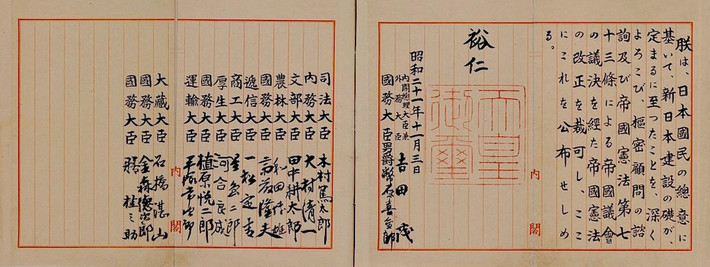 朕は、日本國民の總意に
基いて、新日本建設の礎が、
定まるに至つたことを、深く
よろこび、樞密顧問の諮
詢及び帝國憲法第七
十三條による帝國議會
の議決を経た帝國憲法
の改正を裁可し、ここ
にこれを公布せしめ
る。
裕仁
天皇御璽
昭和二十一年十一月三日
内閣總理大臣兼
外務大臣 吉田茂
國務大臣 男爵 幣原喜重郎
内閣
司法大臣 木村篤太郎
内務大臣 大村清一
文部大臣 田中耕太郎
農林大臣 和田博雄
國務大臣 斎藤隆夫
逓信大臣 一松定吉
商工大臣 星島二郎
厚生大臣 河合良成
國務大臣 植原悦二郎
運輸大臣 平塚常次郎
大藏大臣 石橋湛山
國務大臣 金森徳次郎
國務大臣 膳桂之助
内閣